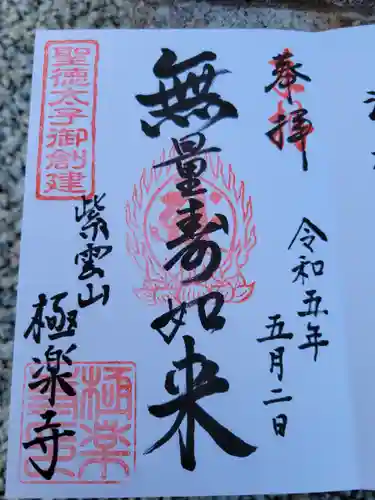 奉拝
令和五年
五月二日
無量寿如来
聖徳太子御創建
紫雲山
極楽寺
極楽